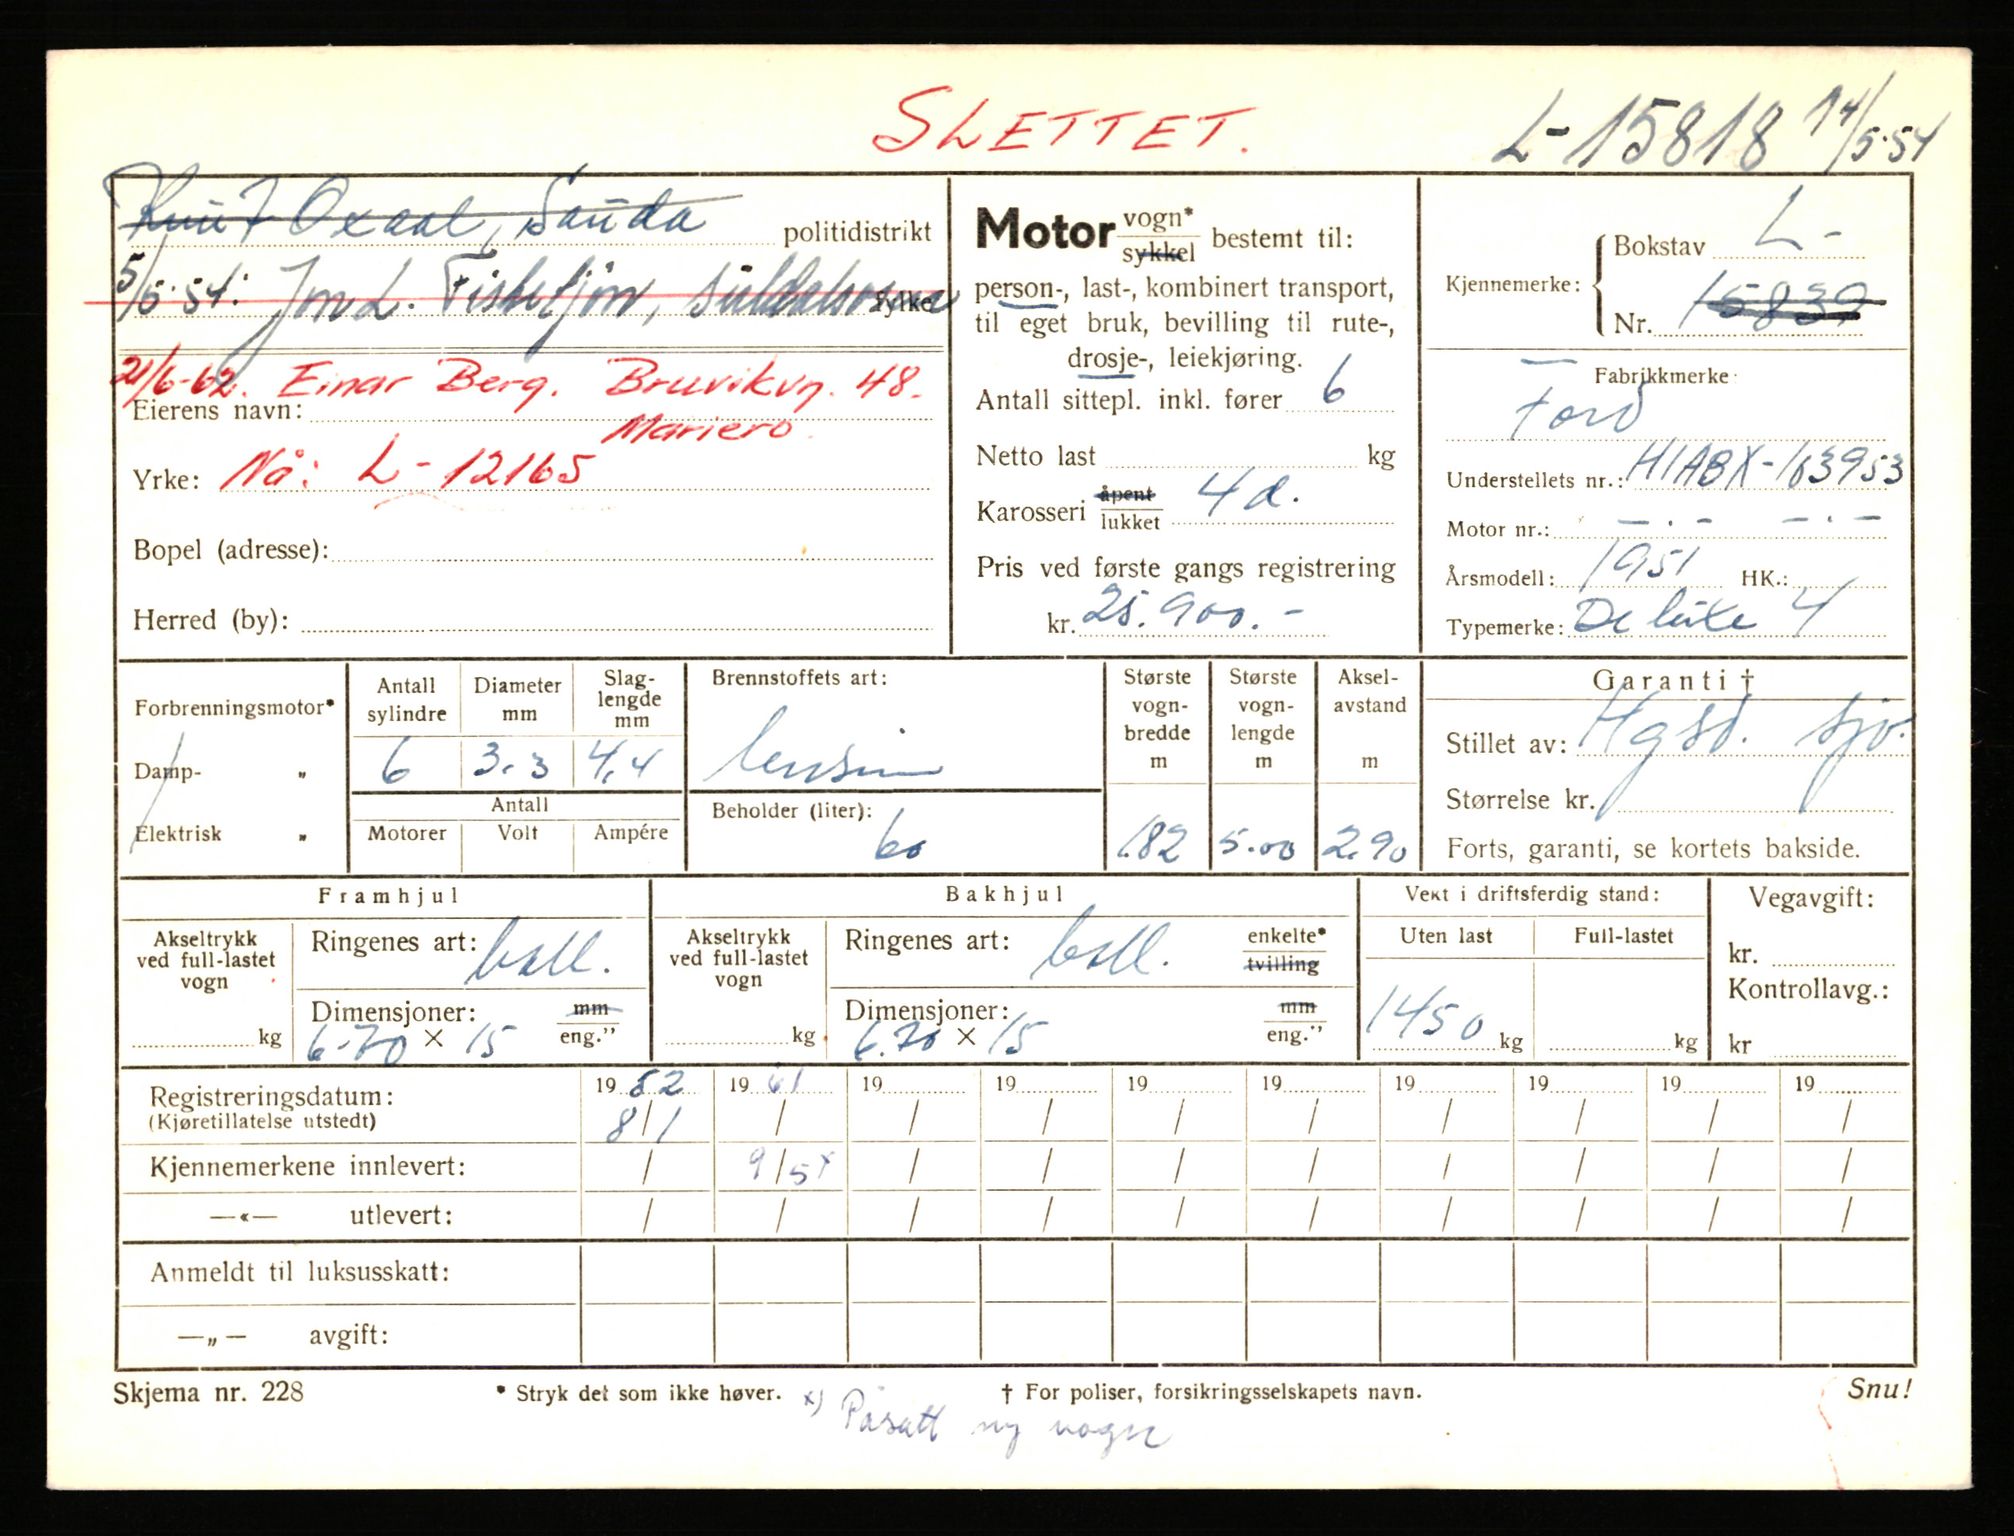 SLETTET.
L-15818 14/5·54
Knut Oxaal, Sauda politidistrikt
5/5·54: Jon L. Fiskefjon, Suldalsosen fylke
21/6-62. Einar Berg. Bruvikvn. 48.
Eierens navn:
Mariero.
Yrke: Nå: L-12165
Bopel (adresse):
Herred (by):
Motor vogn* / sykkel bestemt til:
person-, last-, kombinert transport,
til eget bruk, bevilling til rute-,
drosje-, leiekjøring.
Antall sittepl. inkl. fører 6
Netto last kg
Karosseri åpent / lukket 4d.
Pris ved første gangs registrering
kr. 25.900.-
Kjennemerke: Bokstav L-
Nr. 15839
Fabrikkmerke
Ford
Understellets nr.: H1ABX-163953
Motor nr.: — . — — . —
Årsmodell: 1951 HK.:
Typemerke: De luxe 4
Forbrenningsmotor*
Damp- „
Elektrisk „
Antall sylindre 6
Diameter mm 3.3
Slaglengde mm 4,4
Antall
Motorer Volt Ampére
Brennstoffets art:
bensin
Beholder (liter):
60
Største vognbredde m 1.82
Største vognlengde m 5.00
Akselavstand m 2.90
Garanti †
Stillet av: Hgsd. Sjø.
Størrelse kr.
Forts, garanti, se kortets bakside.
Framhjul
Akseltrykk
ved full-lastet
vogn
kg
Ringenes art: ball.
Dimensjoner: mm / eng."
6-70 × 15
Bakhjul
Akseltrykk
ved full-lastet
vogn
kg
Ringenes art: ball. enkelte* / tvilling
Dimensjoner: mm / eng."
6.70 × 15
Vekt i driftsferdig stand:
Uten last Full-lastet
1450 kg kg
Vegavgift:
kr.
Kontrollavg.:
kr
Registreringsdatum: 1952 1961 19 19 19 19 19 19 19 19
(Kjøretillatelse utstedt) 8/1 / / / / / / / / /
Kjennemerkene innlevert: / 9/5x / / / / / / / /
—«— utlevert: / / / / / / / / / /
Anmeldt til luksusskatt:
—„— avgift:
Skjema nr. 228 * Stryk det som ikke høver. † For poliser, forsikringsselskapets navn. Snu!
x) Påsatt ny vogn